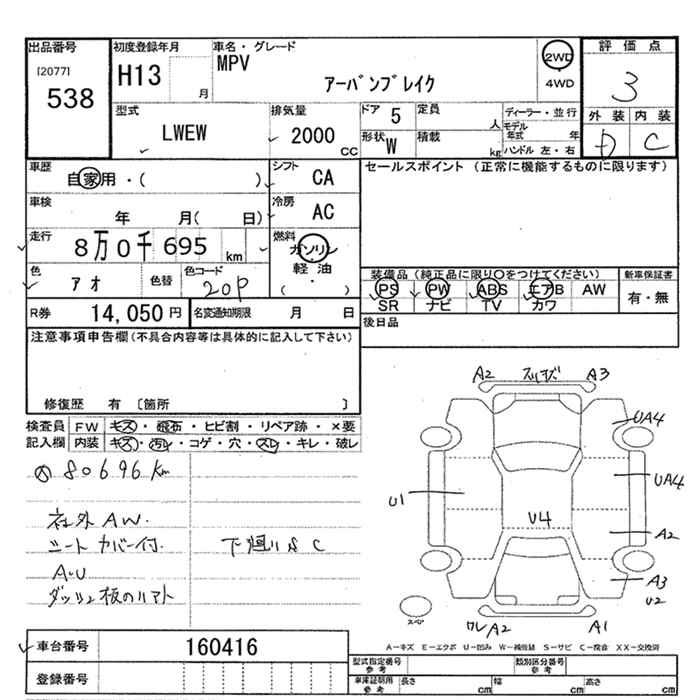 出品番号
[2077]
538
初度登録年月
H13
月
車名・グレード
MPV
アーバンブレイク
2WD
4WD
評価点
3
外装 内装
D C
型式
LWEW
排気量
2000
CC
ドア 5
定員
人
形状 W
積載
kg
ディーラー・並行
モデル年式 年
ハンドル 左・右
車歴
自家用・( )
シフト
CA
セールスポイント (正常に機能するものに限ります)
車検
年 月( 日)
冷房
AC
走行
8万0千695 km
燃料
ガソリン
軽油
( ・ )
色
アオ
色替
色コード
20P
装備品(純正品に限り○をつけてください)
PS PW ABS エアB AW
SR ナビ TV カワ
新車保証書
有・無
R券 14,050円
名変通知期限 月 日
後日品
注意事項申告欄(不具合内容等は具体的に記入して下さい)
修復歴 有 〔箇所 〕
検査員記入欄
FW キズ・飛石・ヒビ割・リペア跡・×要
内装 キズ・汚レ・コゲ・穴・スレ・キレ・破レ
80696km
社外AW.
シートカバー付.
下廻りSC
A・U
ダッシュ板のリアト
A2 A3
UA4
UA4
U1
U4
A2
A3
U2
スペア
ワレA2 A1
A-キズ E-エクボ U-凹み W-補修跡 S-サビ C-腐食 XX-交換済
車台番号 160416
登録番号
型式指定番号 参考
類別区分番号 参考
車庫証明用 参考
長さ cm
幅 cm
高さ cm